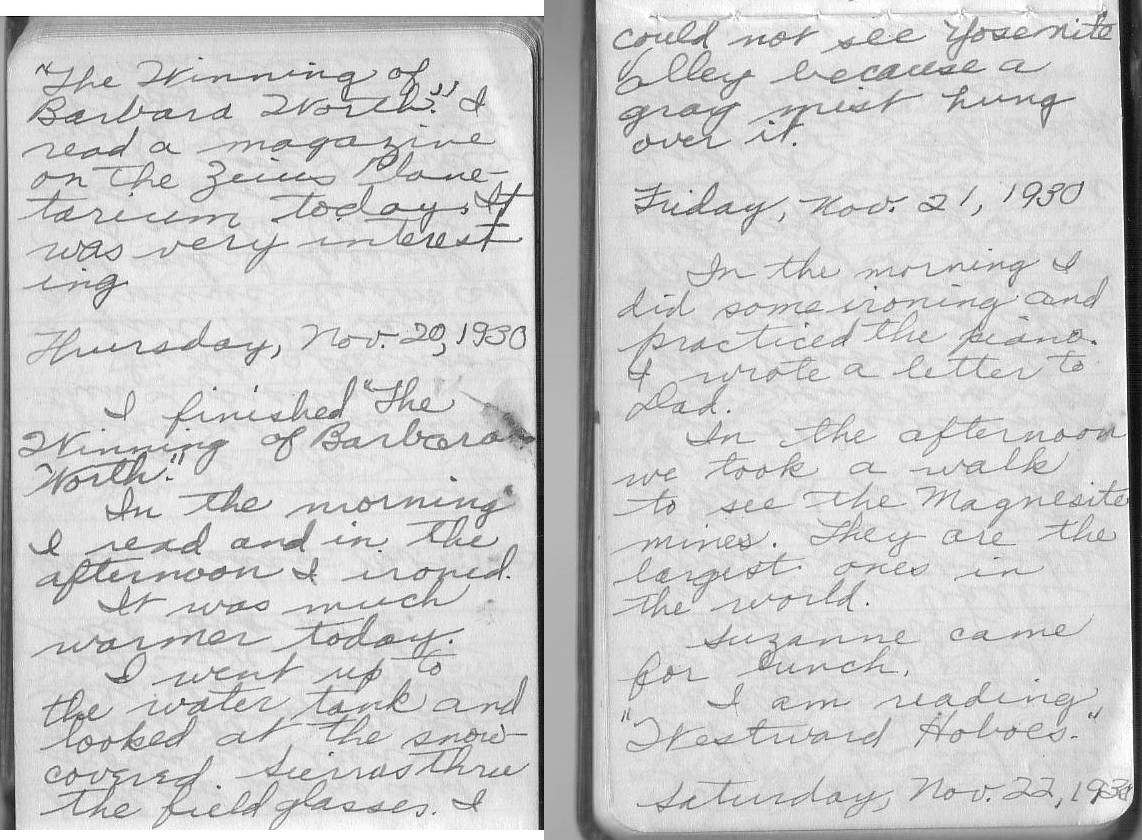 "The Winning of
Barbara Worth." I
read a magazine
on the Zeiss Plane-
tarium today. It
was very interest
ing
Thursday, Nov. 20, 1930
I finished "The
Winning of Barbara
Worth."
In the morning
I read and in the
afternoon I ironed.
It was much
warmer today.
I went up to
the water tank and
looked at the snow-
covered Sierras thru
the field glasses. I
could not see Yosemite
Valley because a
gray mist hung
over it.
Friday, Nov. 21, 1930
In the morning I
did some ironing and
practiced the piano.
I wrote a letter to
Dad.
In the afternoon
we took a walk
to see the Magnesite
mines. They are the
largest ones in
the world.
Suzanne came
for lunch.
I am reading
"Westward Hoboes."
Saturday, Nov. 22, 1930